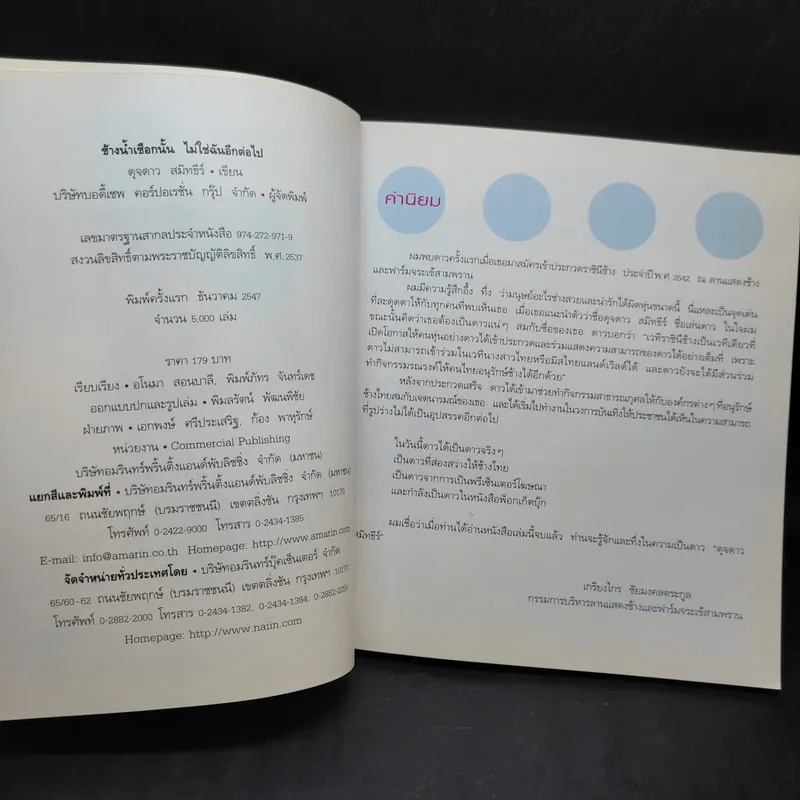 ช้างน้ำเชือกนั้น ไม่ใช่ฉันอีกต่อไป
ดุจดาว สมิทธีร์ • เขียน
บริษัทบอดี้เชพ คอร์ปอเรชั่น กรุ๊ป จำกัด • ผู้จัดพิมพ์
เลขมาตรฐานสากลประจำหนังสือ 974-272-971-9
สงวนลิขสิทธิ์ตามพระราชบัญญัติลิขสิทธิ์ พ.ศ. 2537
พิมพ์ครั้งแรก ธันวาคม 2547
จำนวน 5,000 เล่ม
ราคา 179 บาท
เรียบเรียง • อโนมา สอนบาลี, พิมพ์ภัทร จันทร์เดช
ออกแบบปกและรูปเล่ม • พิมลรัตน์ พัฒนพิชัย
ฝ่ายภาพ • เอกพงษ์ ศรีประเสริฐ, ก้อง พาหุรักษ์
หน่วยงาน • Commercial Publishing
บริษัทอมรินทร์พริ้นติ้งแอนด์พับลิชชิ่ง จำกัด (มหาชน)
แยกสีและพิมพ์ที่ • บริษัทอมรินทร์พริ้นติ้งแอนด์พับลิชชิ่ง จำกัด (มหาชน)
65/16 ถนนชัยพฤกษ์ (บรมราชชนนี) เขตตลิ่งชัน กรุงเทพฯ 10170
โทรศัพท์ 0-2422-9000 โทรสาร 0-2434-1385
E-mail: info@amarin.co.th Homepage: http://www.amarin.co.th
จัดจำหน่ายทั่วประเทศโดย • บริษัทอมรินทร์บุ๊คเซ็นเตอร์ จำกัด
65/60-62 ถนนชัยพฤกษ์ (บรมราชชนนี) เขตตลิ่งชัน กรุงเทพฯ 10170
โทรศัพท์ 0-2882-2000 โทรสาร 0-2434-1382, 0-2434-1384, 0-2882-2250
Homepage: http://www.naiin.com
คำนิยม
ผมพบดาวครั้งแรกเมื่อเธอมาสมัครเข้าประกวดราชินีช้าง ประจำปี พ.ศ. 2542 ณ ลานแสดงช้าง
และฟาร์มจระเข้สามพราน
ผมมีความรู้สึกอึ้ง ทึ่ง ว่ามนุษย์อะไรช่างสวยและน่ารักได้ผิดหุ่นขนาดนี้ นี่แหละเป็นจุดเด่น
ที่สะดุดตาให้กับทุกคนที่พบเห็นเธอ เมื่อเธอแนะนำตัวว่าชื่อดุจดาว สมิทธีร์ ชื่อเล่นดาว ในใจผม
ขณะนั้นคิดว่าเธอต้องเป็นดาวแน่ๆ สมกับชื่อของเธอ ดาวบอกว่า "เวทีราชินีช้างเป็นเวทีเดียวที่
เปิดโอกาสให้คนหุ่นอย่างดาวได้เข้าประกวดและร่วมแสดงความสามารถของดาวได้อย่างเต็มที่ เพราะ
ดาวไม่สามารถเข้าร่วมในเวทีนางสาวไทยหรือมิสไทยแลนด์เวิลด์ได้ และดาวยังจะได้มีส่วนร่วม
ทำกิจกรรมรณรงค์ให้คนไทยอนุรักษ์ช้างได้อีกด้วย"
หลังจากประกวดเสร็จ ดาวได้เข้ามาช่วยทำกิจกรรมสาธารณกุศลให้กับองค์กรต่างๆ ที่อนุรักษ์
ช้างไทยสมกับเจตนารมณ์ของเธอ และได้เริ่มไปทำงานในวงการบันเทิงให้ประชาชนได้เห็นในความสามารถ
ที่รูปร่างไม่ได้เป็นอุปสรรคอีกต่อไป
ในวันนี้ดาวได้เป็นดาวจริงๆ
เป็นดาวที่ส่องสว่างให้ช้างไทย
เป็นดาวจากการเป็นพรีเซ็นเตอร์โฆษณา
และกำลังเป็นดาวในหนังสือพ็อกเก็ตบุ๊ก
ผมเชื่อว่าเมื่อท่านได้อ่านหนังสือเล่มนี้จบแล้ว ท่านจะรู้จักและทึ่งในความเป็นดาว "ดุจดาว
สมิทธีร์"
เกรียงไกร ชัยมงคลตระกูล
กรรมการบริหารลานแสดงช้างและฟาร์มจระเข้สามพราน